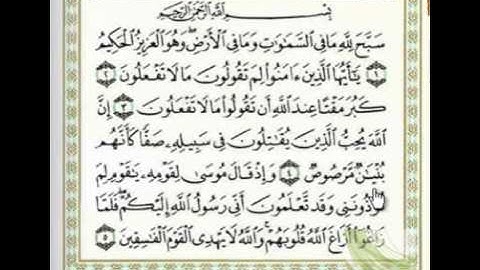 بِسْمِ ٱللَّهِ ٱلرَّحْمَٰنِ ٱلرَّحِيمِ
سَبَّحَ لِلَّهِ مَا فِى ٱلسَّمَٰوَٰتِ وَمَا فِى ٱلْأَرْضِ وَهُوَ ٱلْعَزِيزُ ٱلْحَكِيمُ
١ يَٰٓأَيُّهَا ٱلَّذِينَ ءَامَنُوا۟ لِمَ تَقُولُونَ مَا لَا تَفْعَلُونَ ٢
كَبُرَ مَقْتًا عِندَ ٱللَّهِ أَن تَقُولُوا۟ مَا لَا تَفْعَلُونَ ٣ إِنَّ
ٱللَّهَ يُحِبُّ ٱلَّذِينَ يُقَٰتِلُونَ فِى سَبِيلِهِۦ صَفًّا كَأَنَّهُم
بُنْيَٰنٌ مَّرْصُوصٌ ٤ وَإِذْ قَالَ مُوسَىٰ لِقَوْمِهِۦ يَٰقَوْمِ لِمَ
تُؤْذُونَنِى وَقَد تَّعْلَمُونَ أَنِّى رَسُولُ ٱللَّهِ إِلَيْكُمْ فَلَمَّا
زَاغُوٓا۟ أَزَاغَ ٱللَّهُ قُلُوبَهُمْ وَٱللَّهُ لَا يَهْدِى ٱلْقَوْمَ ٱلْفَٰسِقِينَ ٥